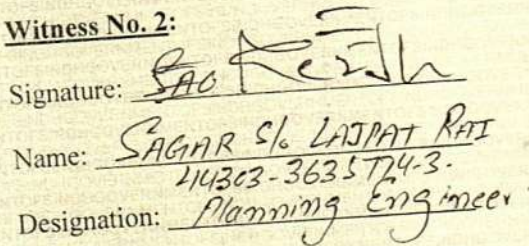 Witness No. 2:
Signature:
Name: SAGAR S/o LAJPAT RAI
Designation: Planning Engineer